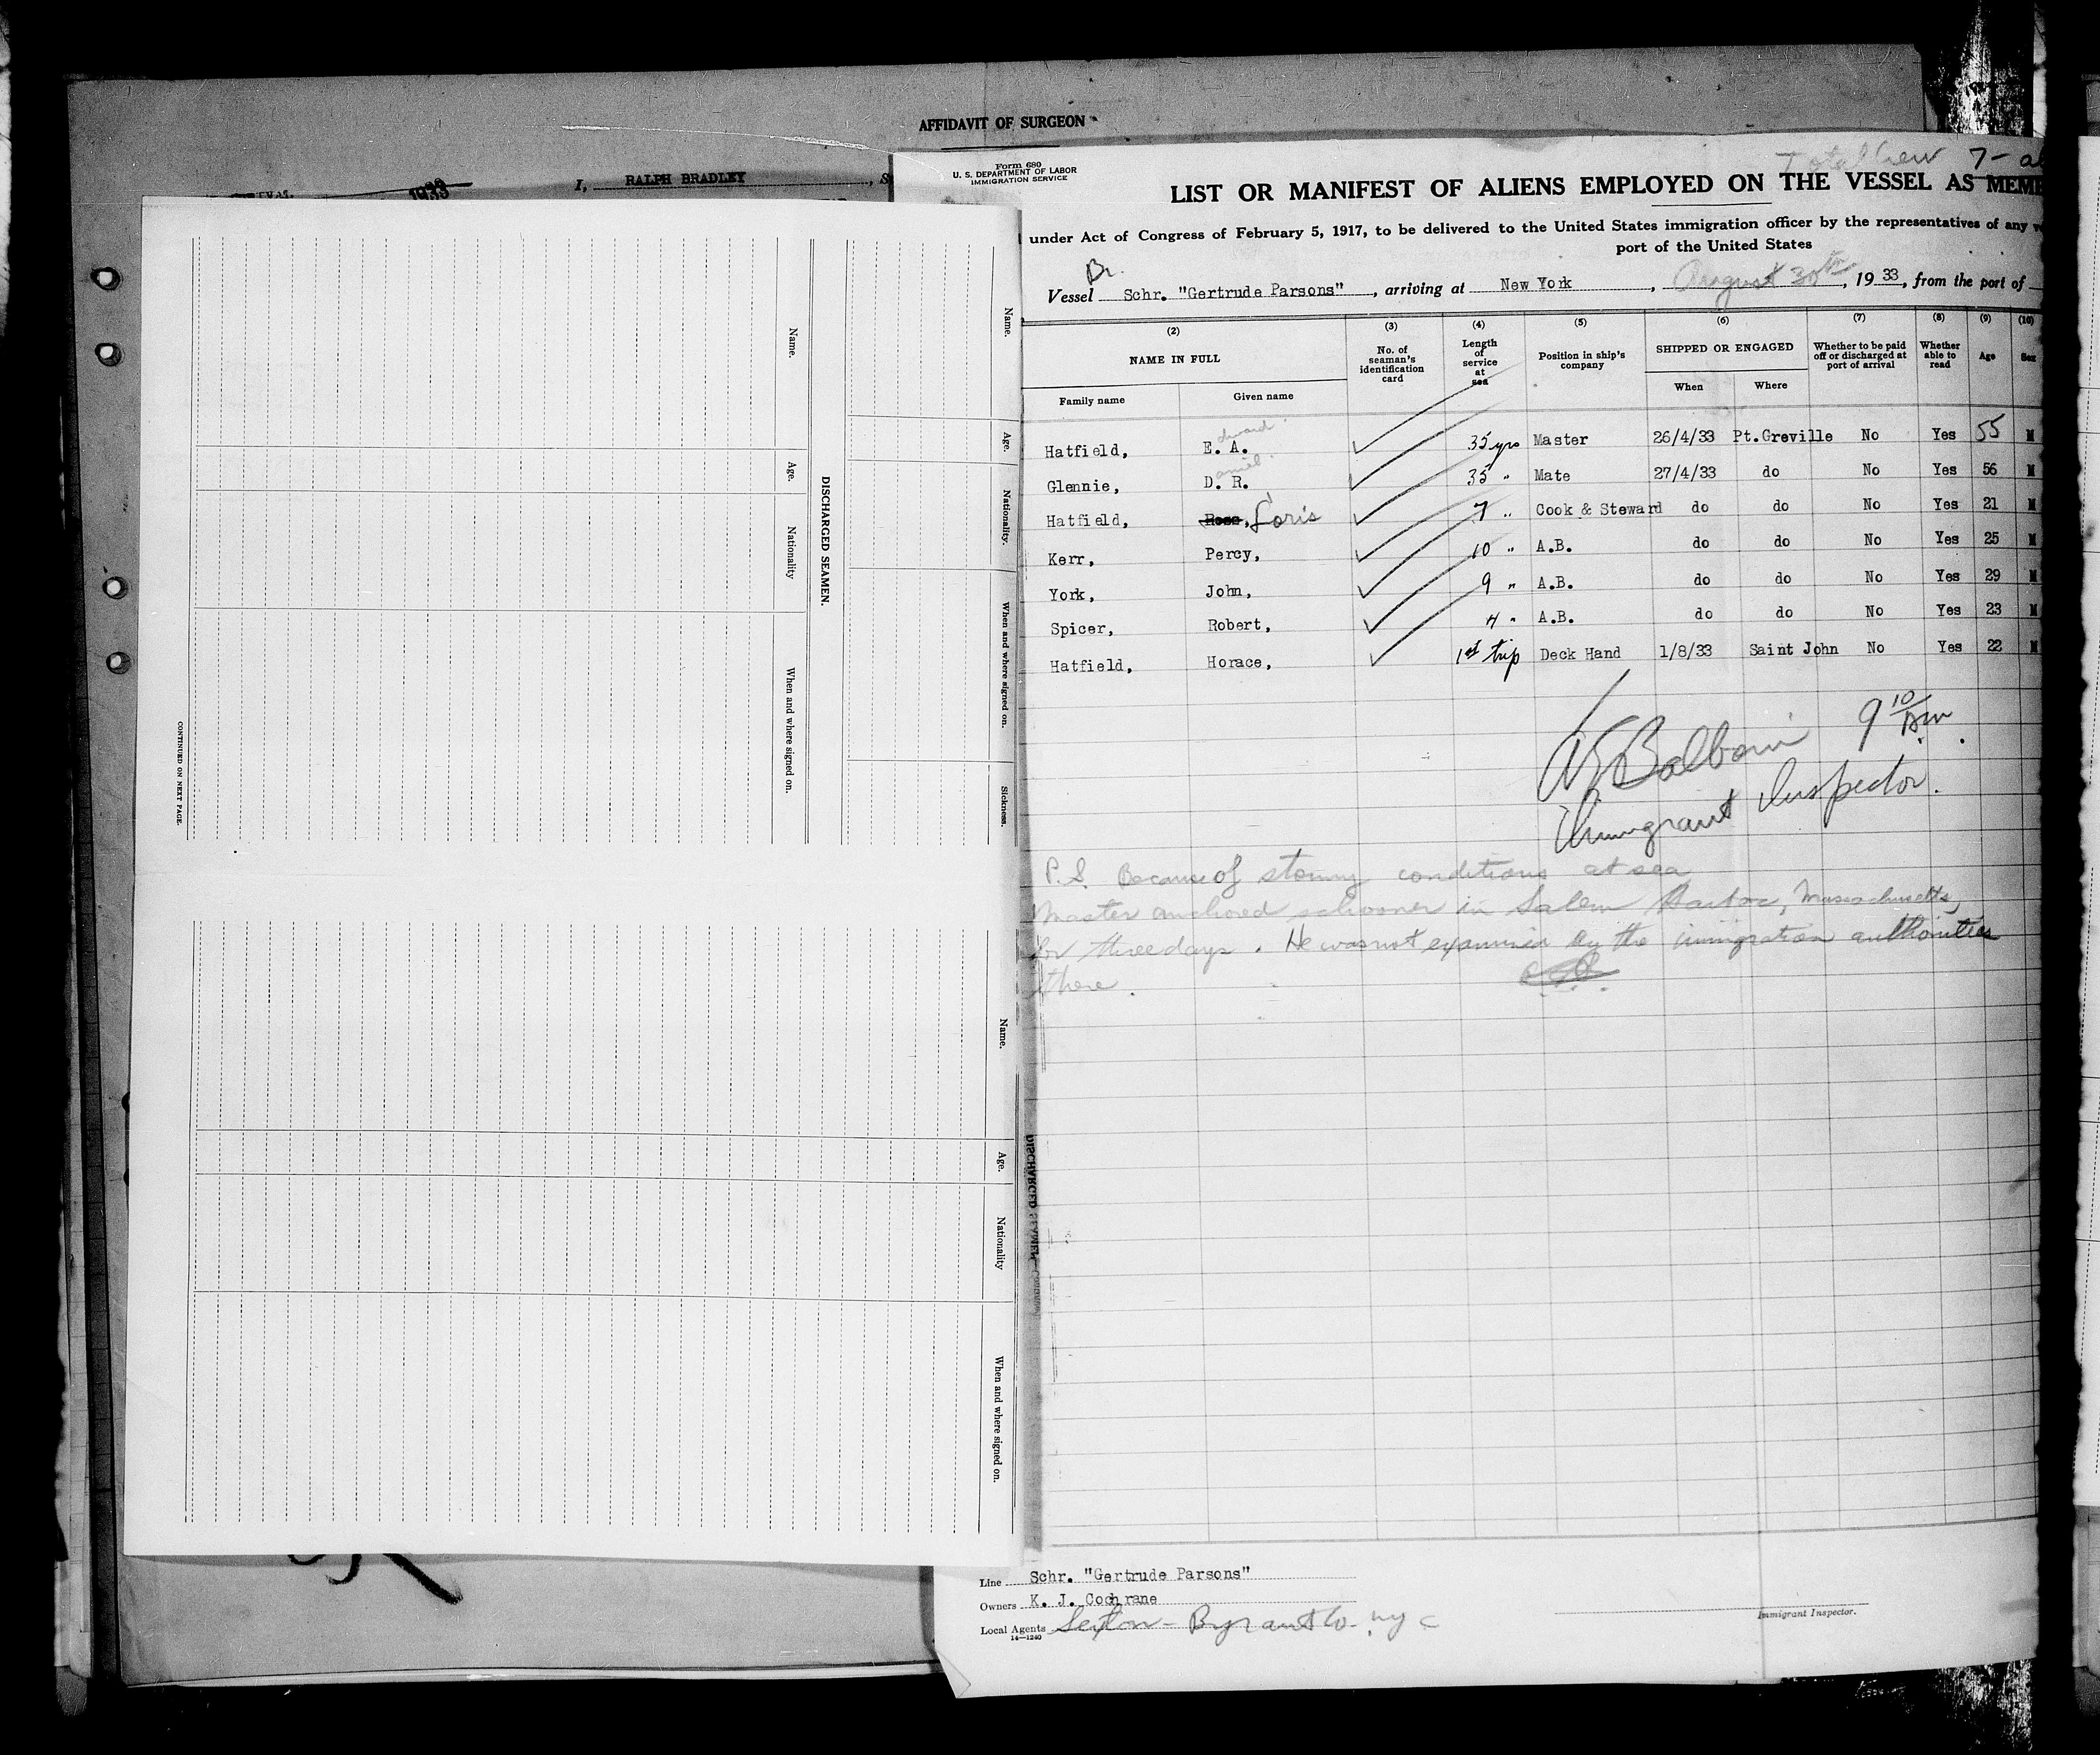 AFFIDAVIT OF SURGEON
1933
I, RALPH BRADLEY
Form 680
U. S. DEPARTMENT OF LABOR
IMMIGRATION SERVICE
Total Crew 7 - al
LIST OR MANIFEST OF ALIENS EMPLOYED ON THE VESSEL AS MEMB
under Act of Congress of February 5, 1917, to be delivered to the United States immigration officer by the representatives of any
port of the United States
Br.
Vessel Schr. "Gertrude Parsons", arriving at New York, August 30th, 1933, from the port of
(2) (3) (4) (5) (6) (7) (8) (9) (10)
NAME IN FULL No. of seaman's identification card Length of service at sea Position in ship's company SHIPPED OR ENGAGED Whether to be paid off or discharged at port of arrival Whether able to read Age Sex
Family name Given name When Where
Hatfield, E. A. Edward 35 yrs Master 26/4/33 Pt.Greville No Yes 55 M
Glennie, D. R. Daniel 35 " Mate 27/4/33 do No Yes 56 M
Hatfield, Ross, Loris 7 " Cook & Steward do do No Yes 21 M
Kerr, Percy, 10 " A.B. do do No Yes 25 M
York, John, 9 " A.B. do do No Yes 29 M
Spicer, Robert, 4 " A.B. do do No Yes 23 M
Hatfield, Horace, 1st trip Deck Hand 1/8/33 Saint John No Yes 22 M
Balboni 9 10 Am.
Immigrant Inspector.
P.S. Because of stormy conditions at sea
Master anchored schooner in Salem Harbor, Massachusetts,
for three days. He was not examined by the immigration authorities
there.
Line Schr. "Gertrude Parsons"
Owners K. J. Cochrane
Local Agents Sexton - Bryant Co. NYC
14—1240
Immigrant Inspector.
Name. Age. Nationality. When and where signed on. Sickness.
DISCHARGED SEAMEN.
Name. Age. Nationality When and where signed on.
CONTINUED ON NEXT PAGE.
Name. Age. Nationality When and where signed on.
DISCHARGED SEAMEN